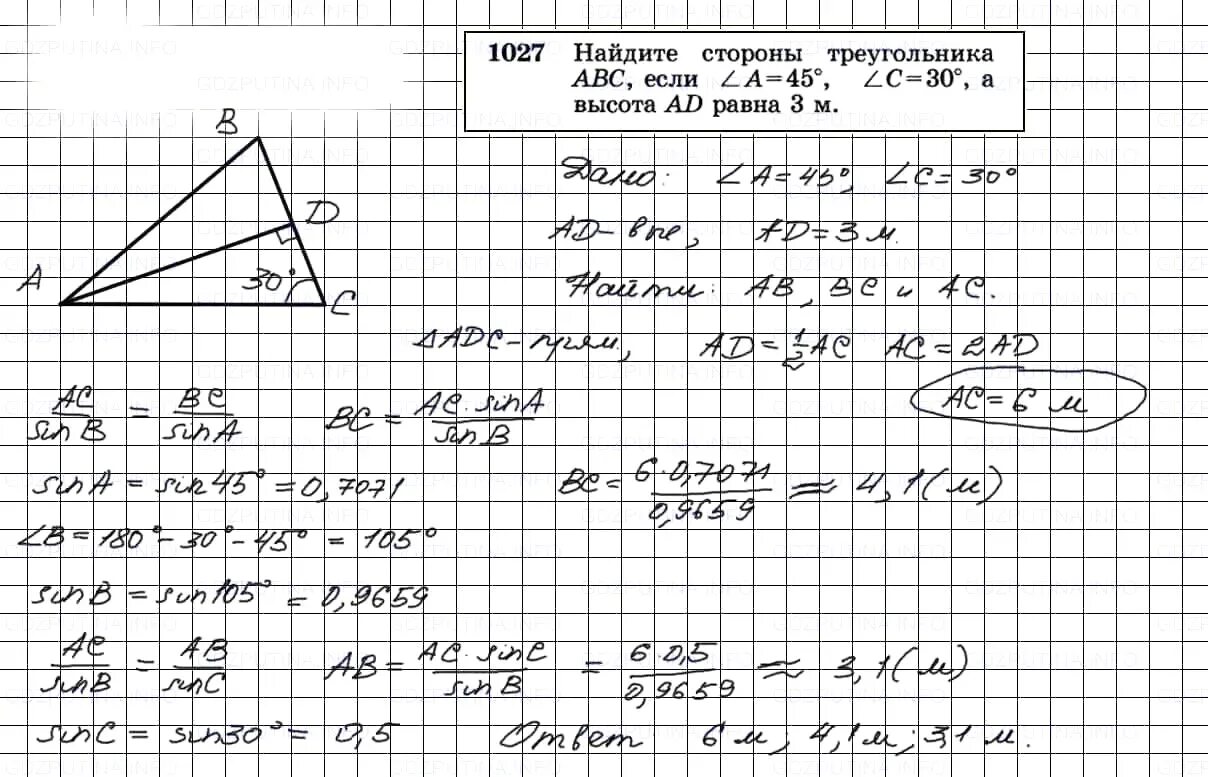 1027 Найдите стороны треугольника
ABC, если ∠A=45°, ∠C=30°, а
высота AD равна 3 м.
B
D
A
30°
C
Дано: ∠A=45°, ∠C=30°
AD-выс, AD=3 м.
Найти: AB, BC и AC.
ΔADC-прям, AD=1/2AC AC=2AD
AC=6 м
AC/sinB = BC/sinA BC = AC·sinA/sinB
sinA = sin45° = 0,7071 BC = 6·0,7071/0,9659 ≈ 4,1(м)
∠B=180°-30°-45° = 105°
sinB = sin105° = 0,9659
AC/sinB = AB/sinC AB = AC·sinC/sinB = 6·0,5/0,9659 ≈ 3,1(м)
sinC = sin30° = 0,5 Ответ 6м; 4,1м; 3,1м.
GDZPUTINA.INFO